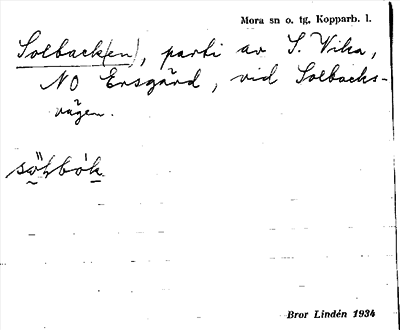 Mora sn o. tg, Kopparb. l.
Solback(en), parti av S. Vika,
NO Ersgård, vid Solbacks-
vägen.
Bror Lindén 1934